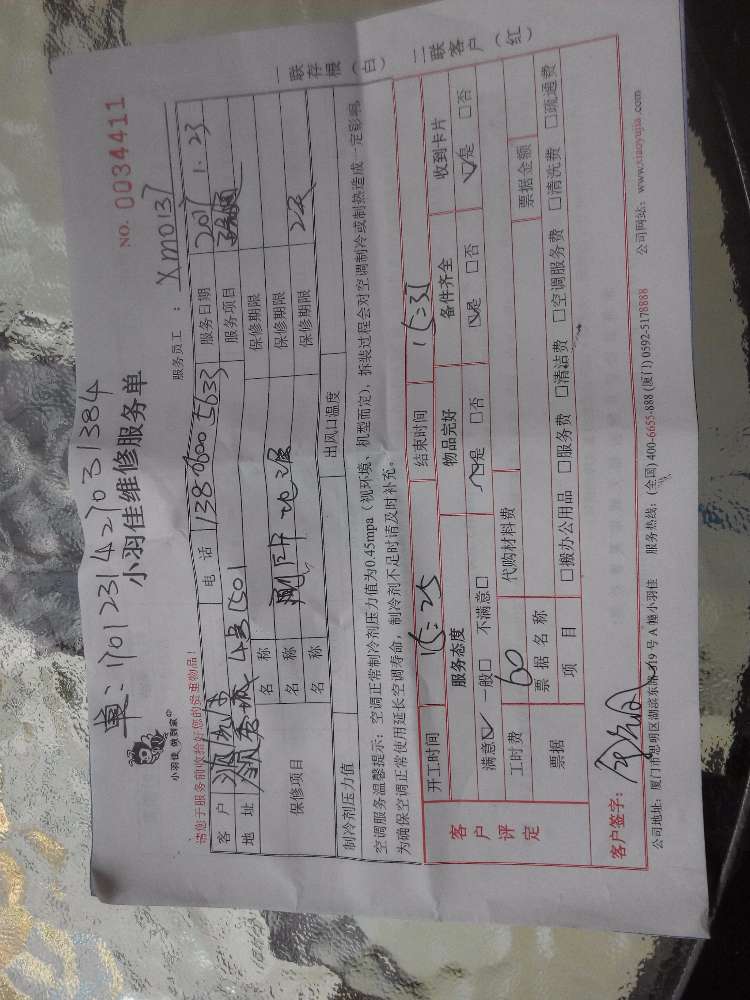 单：1701231427031384
NO. 0034411
小羽佳 做到家
小羽佳维修服务单
服务员工： XM0137
请您于服务前收拾好您的贵重物品！
客户 电话 13806005633 服务日期 2017.1.23
地址 4号1501 服务项目
保修项目 名称 保修期限
名称 保修期限
名称 保修期限 2天
制冷剂压力值 出风口温度
空调服务温馨提示：空调正常制冷剂压力值为0.45mpa（视环境、机型而定），拆装过程会对空调制冷或制热造成一定影响，
为确保空调正常使用延长空调寿命，制冷剂不足时请及时补充。
一联存根（白） 二联客户（红）
客户评定
开工时间 15:25 结束时间 15:35
服务态度 物品完好 备件齐全 收到卡片
满意☑ 一般□ 不满意□ ☑是 □否 ☑是 □否 ☑是 □否
工时费 60 代购材料费
票据 票据名称 票据金额
项目 □搬办公用品 □服务费 □清洁费 □空调服务费 □清洗费 □疏通费
客户签字：
公司地址：厦门市思明区湖滨东路319号A幢小羽佳 服务热线：(全国)400-6655-888 (厦门)0592-5178888 公司网站：www.xiaoyujia.com